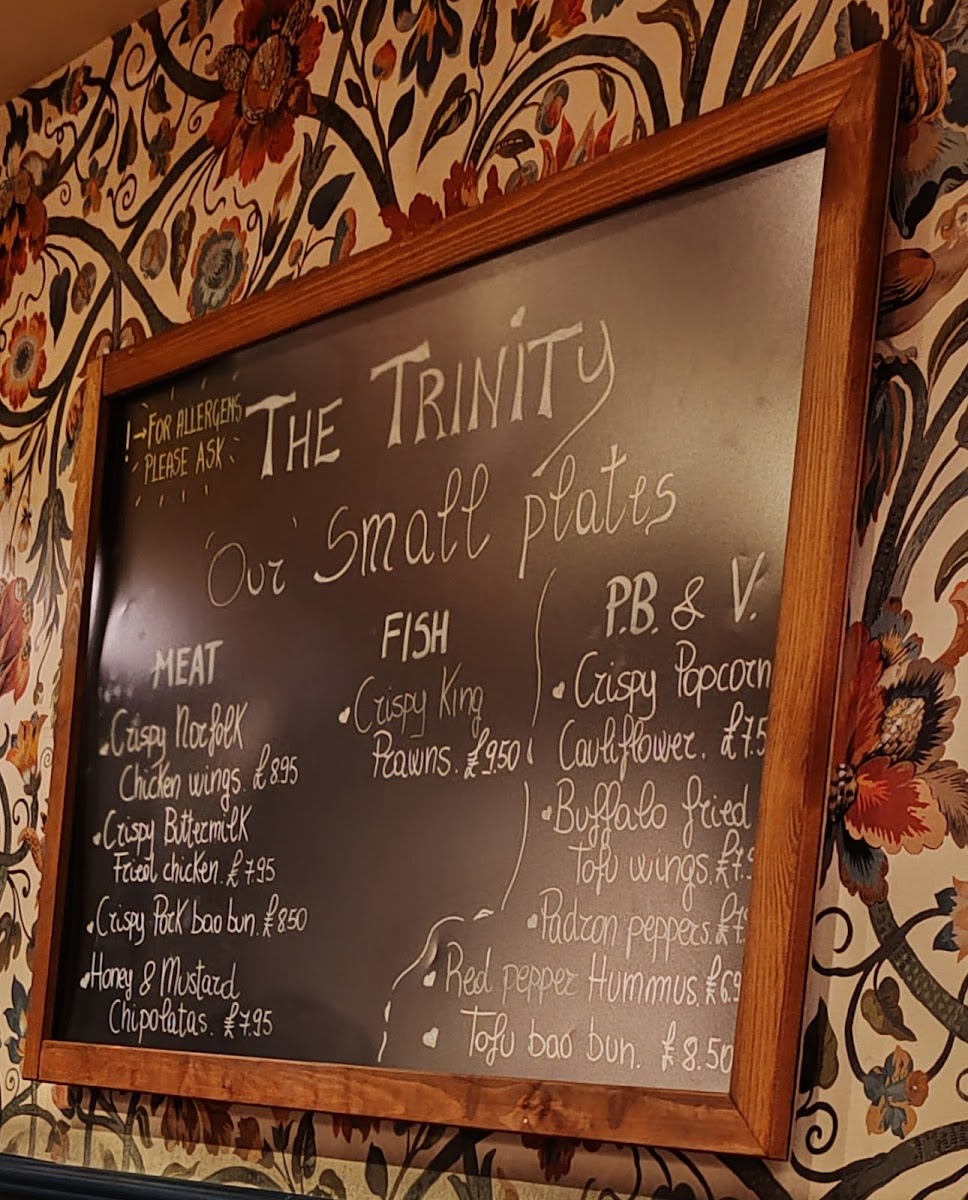 ! → FOR ALLERGENS
PLEASE ASK
THE TRINITY
'Our' Small plates
MEAT
Crispy Norfolk
Chicken wings. £8.95
Crispy Buttermilk
Fried chicken. £7.95
Crispy Pork bao bun. £8.50
Honey & Mustard
Chipolatas. £7.95
FISH
Crispy King
Prawns. £9.50
P.B. & V.
Crispy Popcorn
Cauliflower. £7.5
Buffalo fried
Tofu wings. £7.9
Padron peppers. £7.
Red pepper Hummus. £6.9
Tofu bao bun. £8.50